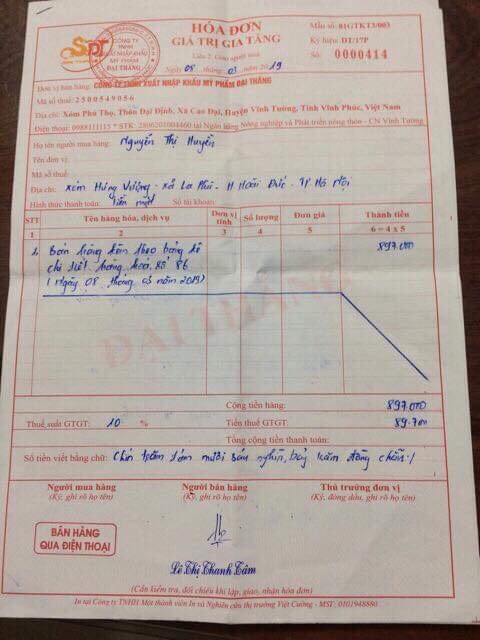 HÓA ĐƠN
GIÁ TRỊ GIA TĂNG
Liên 2: Giao người mua
Ngày 08 tháng 03 năm 2019
Mẫu số: 01GTKT3/003
Ký hiệu: DT/17P
Số: 0000414
Spt
CÔNG TY
TNHH
XUẤT NHẬP KHẨU
MỸ PHẨM
ĐẠI THĂNG
Đơn vị bán hàng: CÔNG TY TNHH XUẤT NHẬP KHẨU MỸ PHẨM ĐẠI THĂNG
Mã số thuế: 2500549056
Địa chỉ: Xóm Phú Thọ, Thôn Đại Định, Xã Cao Đại, Huyện Vĩnh Tường, Tỉnh Vĩnh Phúc, Việt Nam
Điện thoại: 0988111115 * STK: 2806201004460 tại Ngân hàng Nông nghiệp và Phát triển nông thôn - CN Vĩnh Tường
Họ tên người mua hàng: Nguyễn Thị Huyền
Tên đơn vị:
Địa chỉ: Xóm Hùng Vương - Xã La Phù - H Hoài Đức - TP Hà Nội
Hình thức thanh toán: Tiền mặt Số tài khoản:
STT Tên hàng hóa, dịch vụ Đơn vị tính Số lượng Đơn giá Thành tiền
1 2 3 4 5 6 = 4 x 5
1. Bán hàng kèm theo bảng kê 897.000
chi tiết hàng hoá số 86
(Ngày 08 tháng 03 năm 2019)
ĐẠI THĂNG
Cộng tiền hàng: 897.000
Thuế suất GTGT: 10 % Tiền thuế GTGT: 89.700
Tổng cộng tiền thanh toán:
Số tiền viết bằng chữ: Chín trăm tám mươi sáu nghìn, bảy trăm đồng chẵn./
Người mua hàng Người bán hàng Thủ trưởng đơn vị
(Ký, ghi rõ họ tên) (Ký, ghi rõ họ tên) (Ký, đóng dấu, ghi rõ họ tên)
BÁN HÀNG
QUA ĐIỆN THOẠI
Lê Thị Thanh Tâm
(Cần kiểm tra, đối chiếu khi lập, giao, nhận hóa đơn)
In tại Công ty TNHH Một thành viên In và Nghiên cứu thị trường Việt Cường - MST: 0101948880